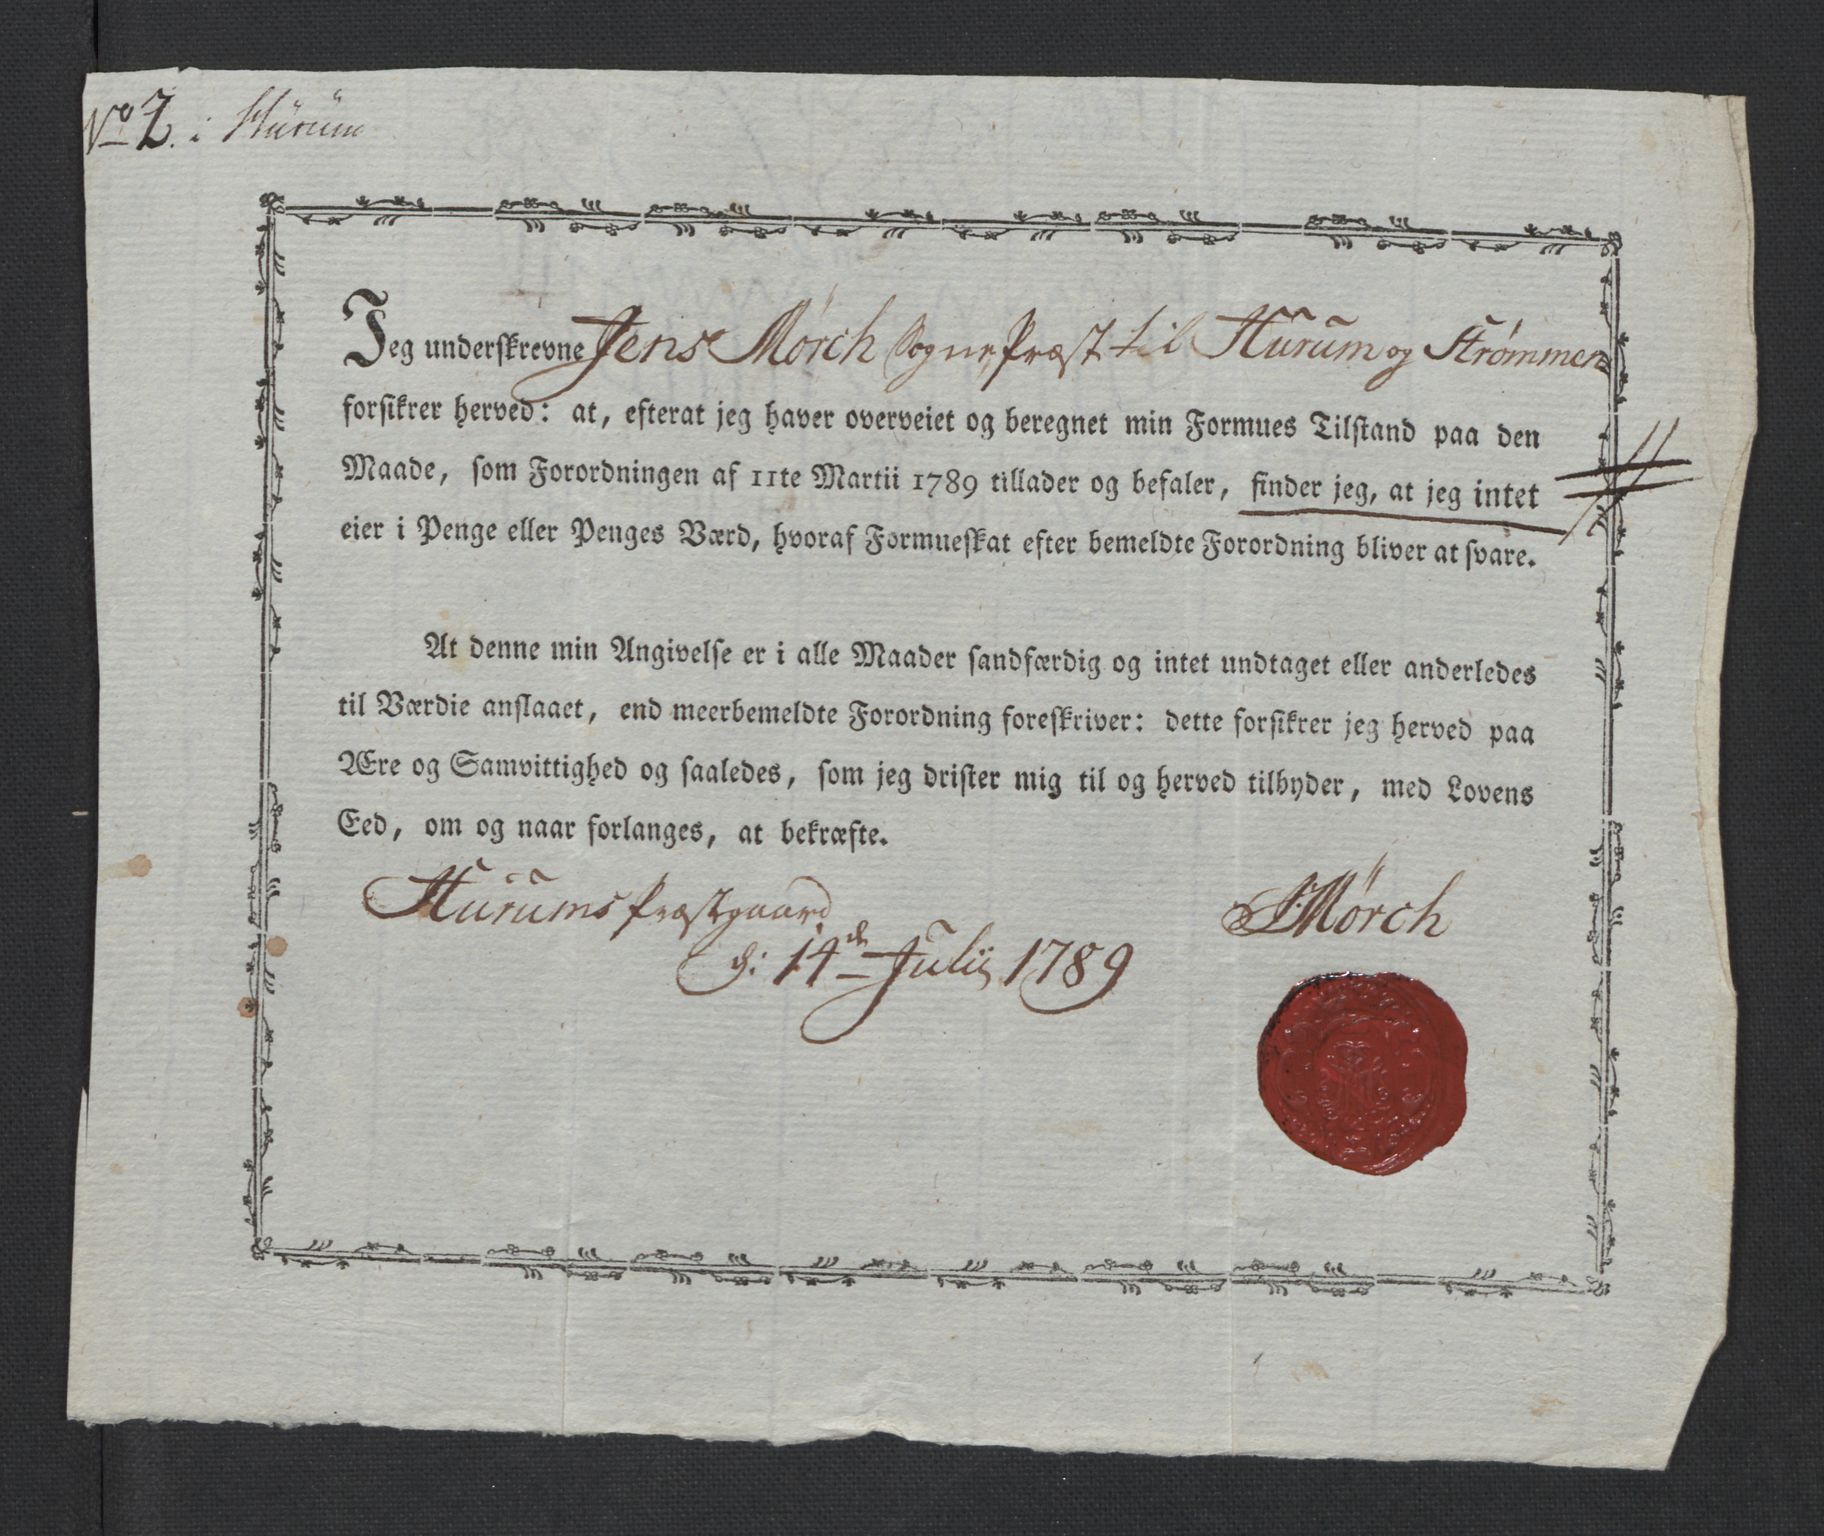 No 2. i Hürüm
Jeg underskrevne Jens Mørch SognePræst til Hurum og Strømmen
forsikrer herved: at, efterat jeg haver overveiet og beregnet min Formues Tilstand paa den
Maade, som Forordningen af 11te Martii 1789 tillader og befaler, finder jeg, at jeg intet
eier i Penge eller Penges Værd, hvoraf Formueskat efter bemeldte Forordning bliver at svare.
At denne min Angivelse er i alle Maader sandfærdig og intet undtaget eller anderledes
til Værdie anslaaet, end meerbemeldte Forordning foreskriver: dette forsikrer jeg herved paa
Ære og Samvittighed og saaledes, som jeg drister mig til og herved tilbyder, med Lovens
Eed, om og naar forlanges, at bekræfte.
Hurums Præstgaard
d: 14de Julii 1789
JMørch